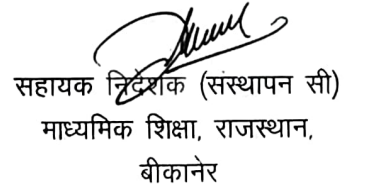 सहायक निदेशक (संस्थापन सी)
माध्यमिक शिक्षा, राजस्थान,
बीकानेर